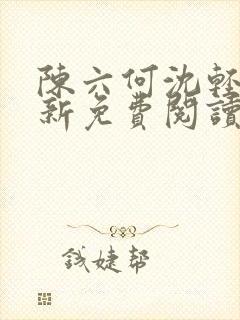 陳六何沈輕
新免費閱讀
钱婕帮